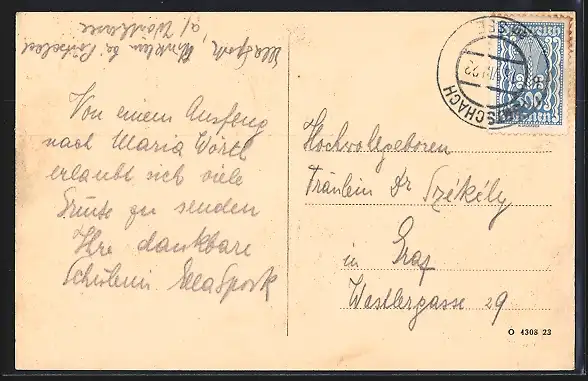 Ella Spork, Pörtschach
a/ Wörthersee
Von einem Ausfeug
nach Maria Wörth
erlaubt sich viele
Grüße zu senden
Ihre dankbare
Schülerin Ella Spork
Hochwolgeboren
Fräulein Dr Székély
in Graz
Wastlergasse 29
O 4308 23